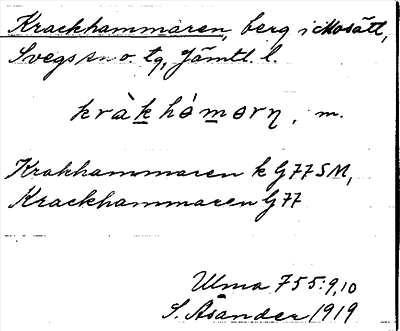 Krackhammaren, berg i Mosätt,
Svegs sn o. tg, Jämtl. l.
kràkhámərn, m.
Krakhammaren k G77SM,
Krackhammaren G77
Ulma 755:9,10
S. Åsander 1919